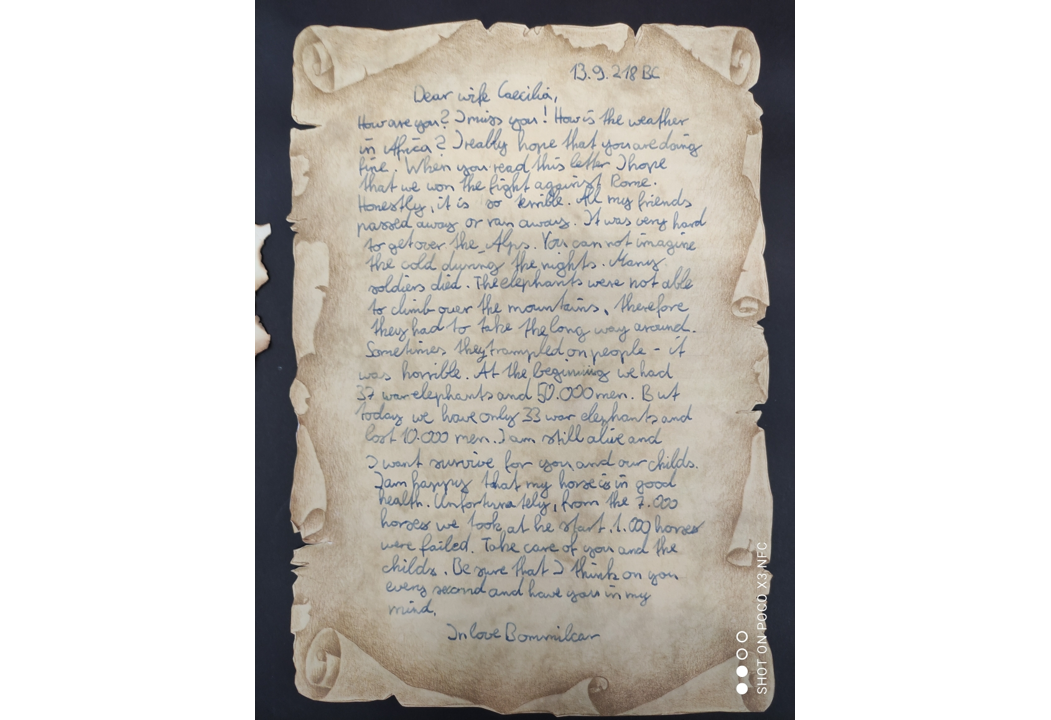 13.9.218 BC
Dear wife Caecilia,
How are you? I miss you! How is the weather
in Africa? I really hope that you are doing
fine. When you read this letter I hope
that we won the fight against Rome.
Honestly, it is so terrible. All my friends
passed away or ran aways. It was very hard
to get over the Alps. You can not imagine
the cold dyring the nights. Many
soldiers died. The elephants were not able
to climb over the mountains, therefore
they had to take the long way around.
Sometimes they trampled on people - it
was horrible. At the beginning we had
37 war elephants and 50.000 men. But
today we have only 33 war elephants and
lost 10.000 men. I am still alive and
I want survive for you and our childs.
I am happy that my horse is in good
health. Unfortunately, from the 7.000
horses we took at he start. 1.000 horses
were failed. Take care of you and the
childs. Be sure that I think on you
every second and have you in my
mind.
In love Bommilcar
SHOT ON POCO X3 NFC